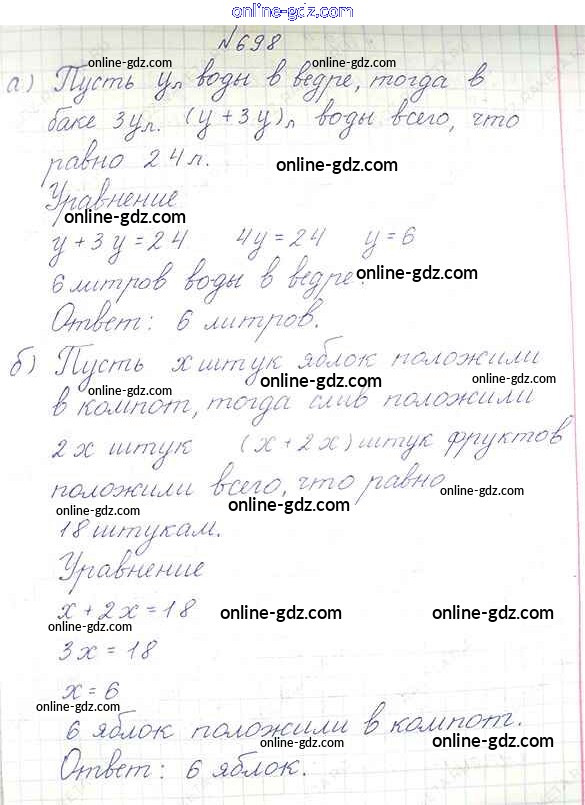 online-gdz.com
№698
online-gdz.com online-gdz.com
а) Пусть y л воды в ведре, тогда в
online-gdz.com online-gdz.com
баке 3y л. (y + 3y) л воды всего, что
равно 24 л.
online-gdz.com
Уравнение
online-gdz.com
y + 3y = 24 4y = 24 y = 6
6 литров воды в ведре.
online-gdz.com
Ответ: 6 литров.
б) Пусть x штук яблок положили
online-gdz.com online-gdz.com online-gdz.com
в компот, тогда слив положили
2x штук (x + 2x) штук фруктов
online-gdz.com
положили всего, что равно
online-gdz.com
online-gdz.com online-gdz.com
18 штукам.
Уравнение
x + 2x = 18
online-gdz.com online-gdz.com
online-gdz.com
3x = 18
x = 6
online-gdz.com
6 яблок положили в компот.
online-gdz.com online-gdz.com
Ответ: 6 яблок.